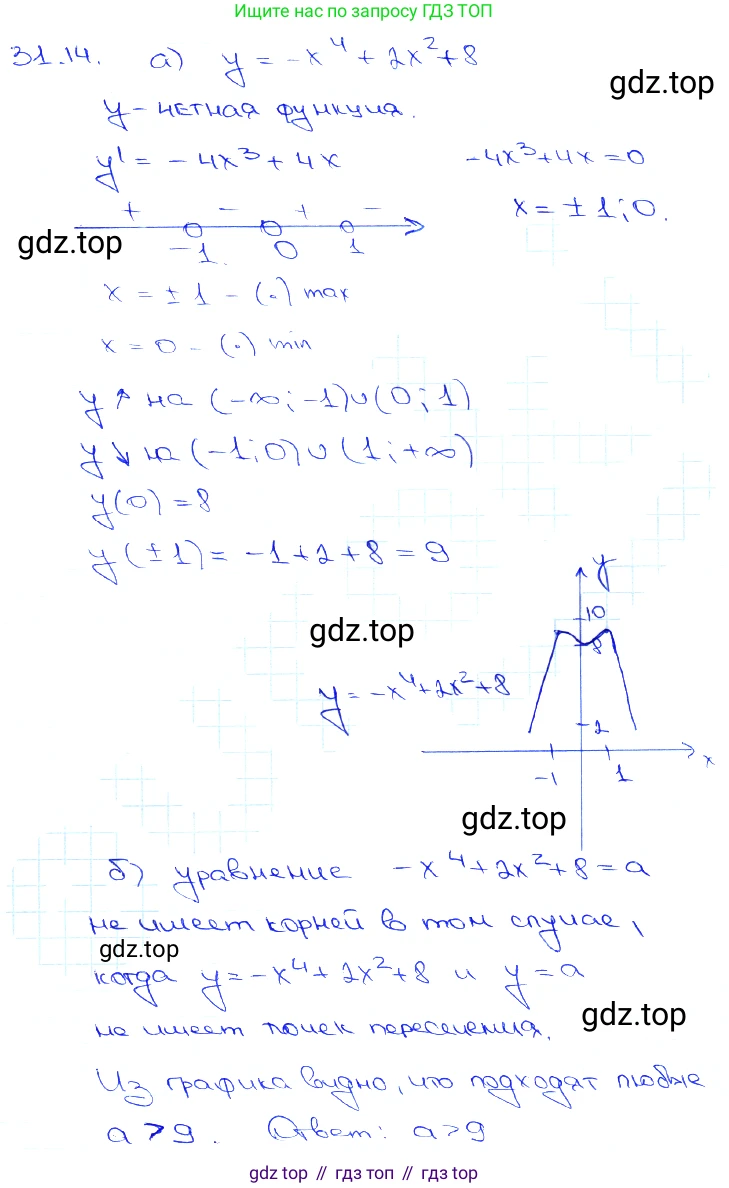 Ищите нас по запросу ГДЗ ТОП
31.14. а) y = -x⁴ + 2x² + 8
gdz.top
y - четная функция.
y' = -4x³ + 4x
-4x³ + 4x = 0
x = ± 1; 0.
+ - + -
gdz.top
-1 0 1
x = ± 1 - (·) max
x = 0 - (·) min
y ↑ на (-∞; -1) ∪ (0; 1)
y ↓ на (-1; 0) ∪ (1; +∞)
y(0) = 8
y(± 1) = -1 + 2 + 8 = 9
y
10
gdz.top
8
y = -x⁴ + 2x² + 8
2
x
-1 1
gdz.top
б) уравнение -x⁴ + 2x² + 8 = a
не имеет корней в том случае,
gdz.top
когда y = -x⁴ + 2x² + 8 и y = a
не имеет точек пересечения.
gdz.top
Из графика видно, что подходят любые
a > 9. Ответ: a > 9
gdz.top // гдз топ // gdz.top